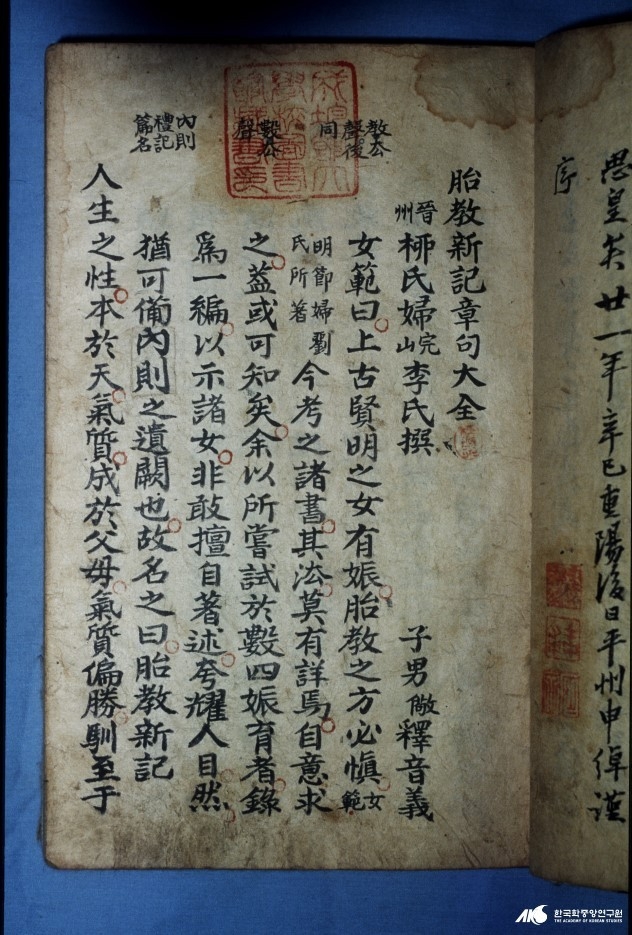 皇
廿一年辛巳重陽後日平州申綽謹
序
教去聲後同
數去聲
內則禮記篇名
胎教新記章句大全
晉州柳氏婦完山李氏撰 子男儆釋音義
女範曰上古賢明之女有娠胎教之方必愼女範
明節婦劉氏所著今考之諸書其法莫有詳焉自意求
之蓋或可知矣余以所嘗試於數四娠育者錄
爲一編以示諸女非敢擅自著述夸耀人目然
猶可備內則之遺闕也故名之曰胎教新記
人生之性本於天氣質成於父母氣質偏勝馴至于
AKS 한국학중앙연구원
THE ACADEMY OF KOREAN STUDIES